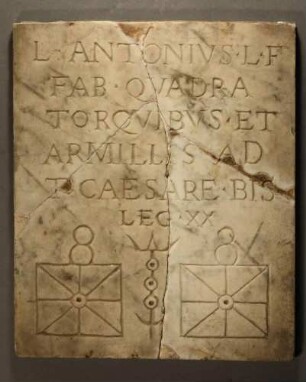 L · ANTONIVS · L · F
FAB · QVADRA
TORQVIBVS · ET
ARMILLIS AD
TI CAESARE · BIS
LEG · XX